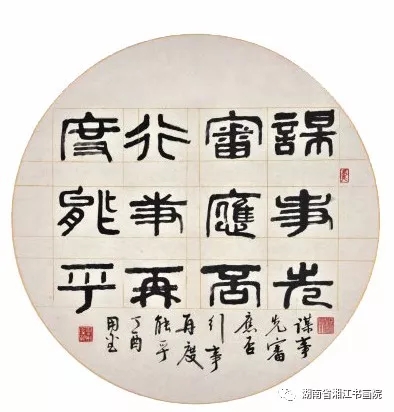 謀事先
審應否
行事再
度能乎
谋事
先審
應否
行事
再度
能乎
丁酉
湖南省湘江书画院